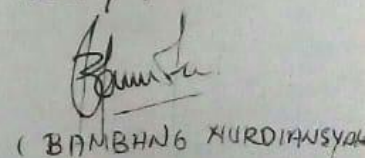 ( BAMBANG NURDIANSYAH